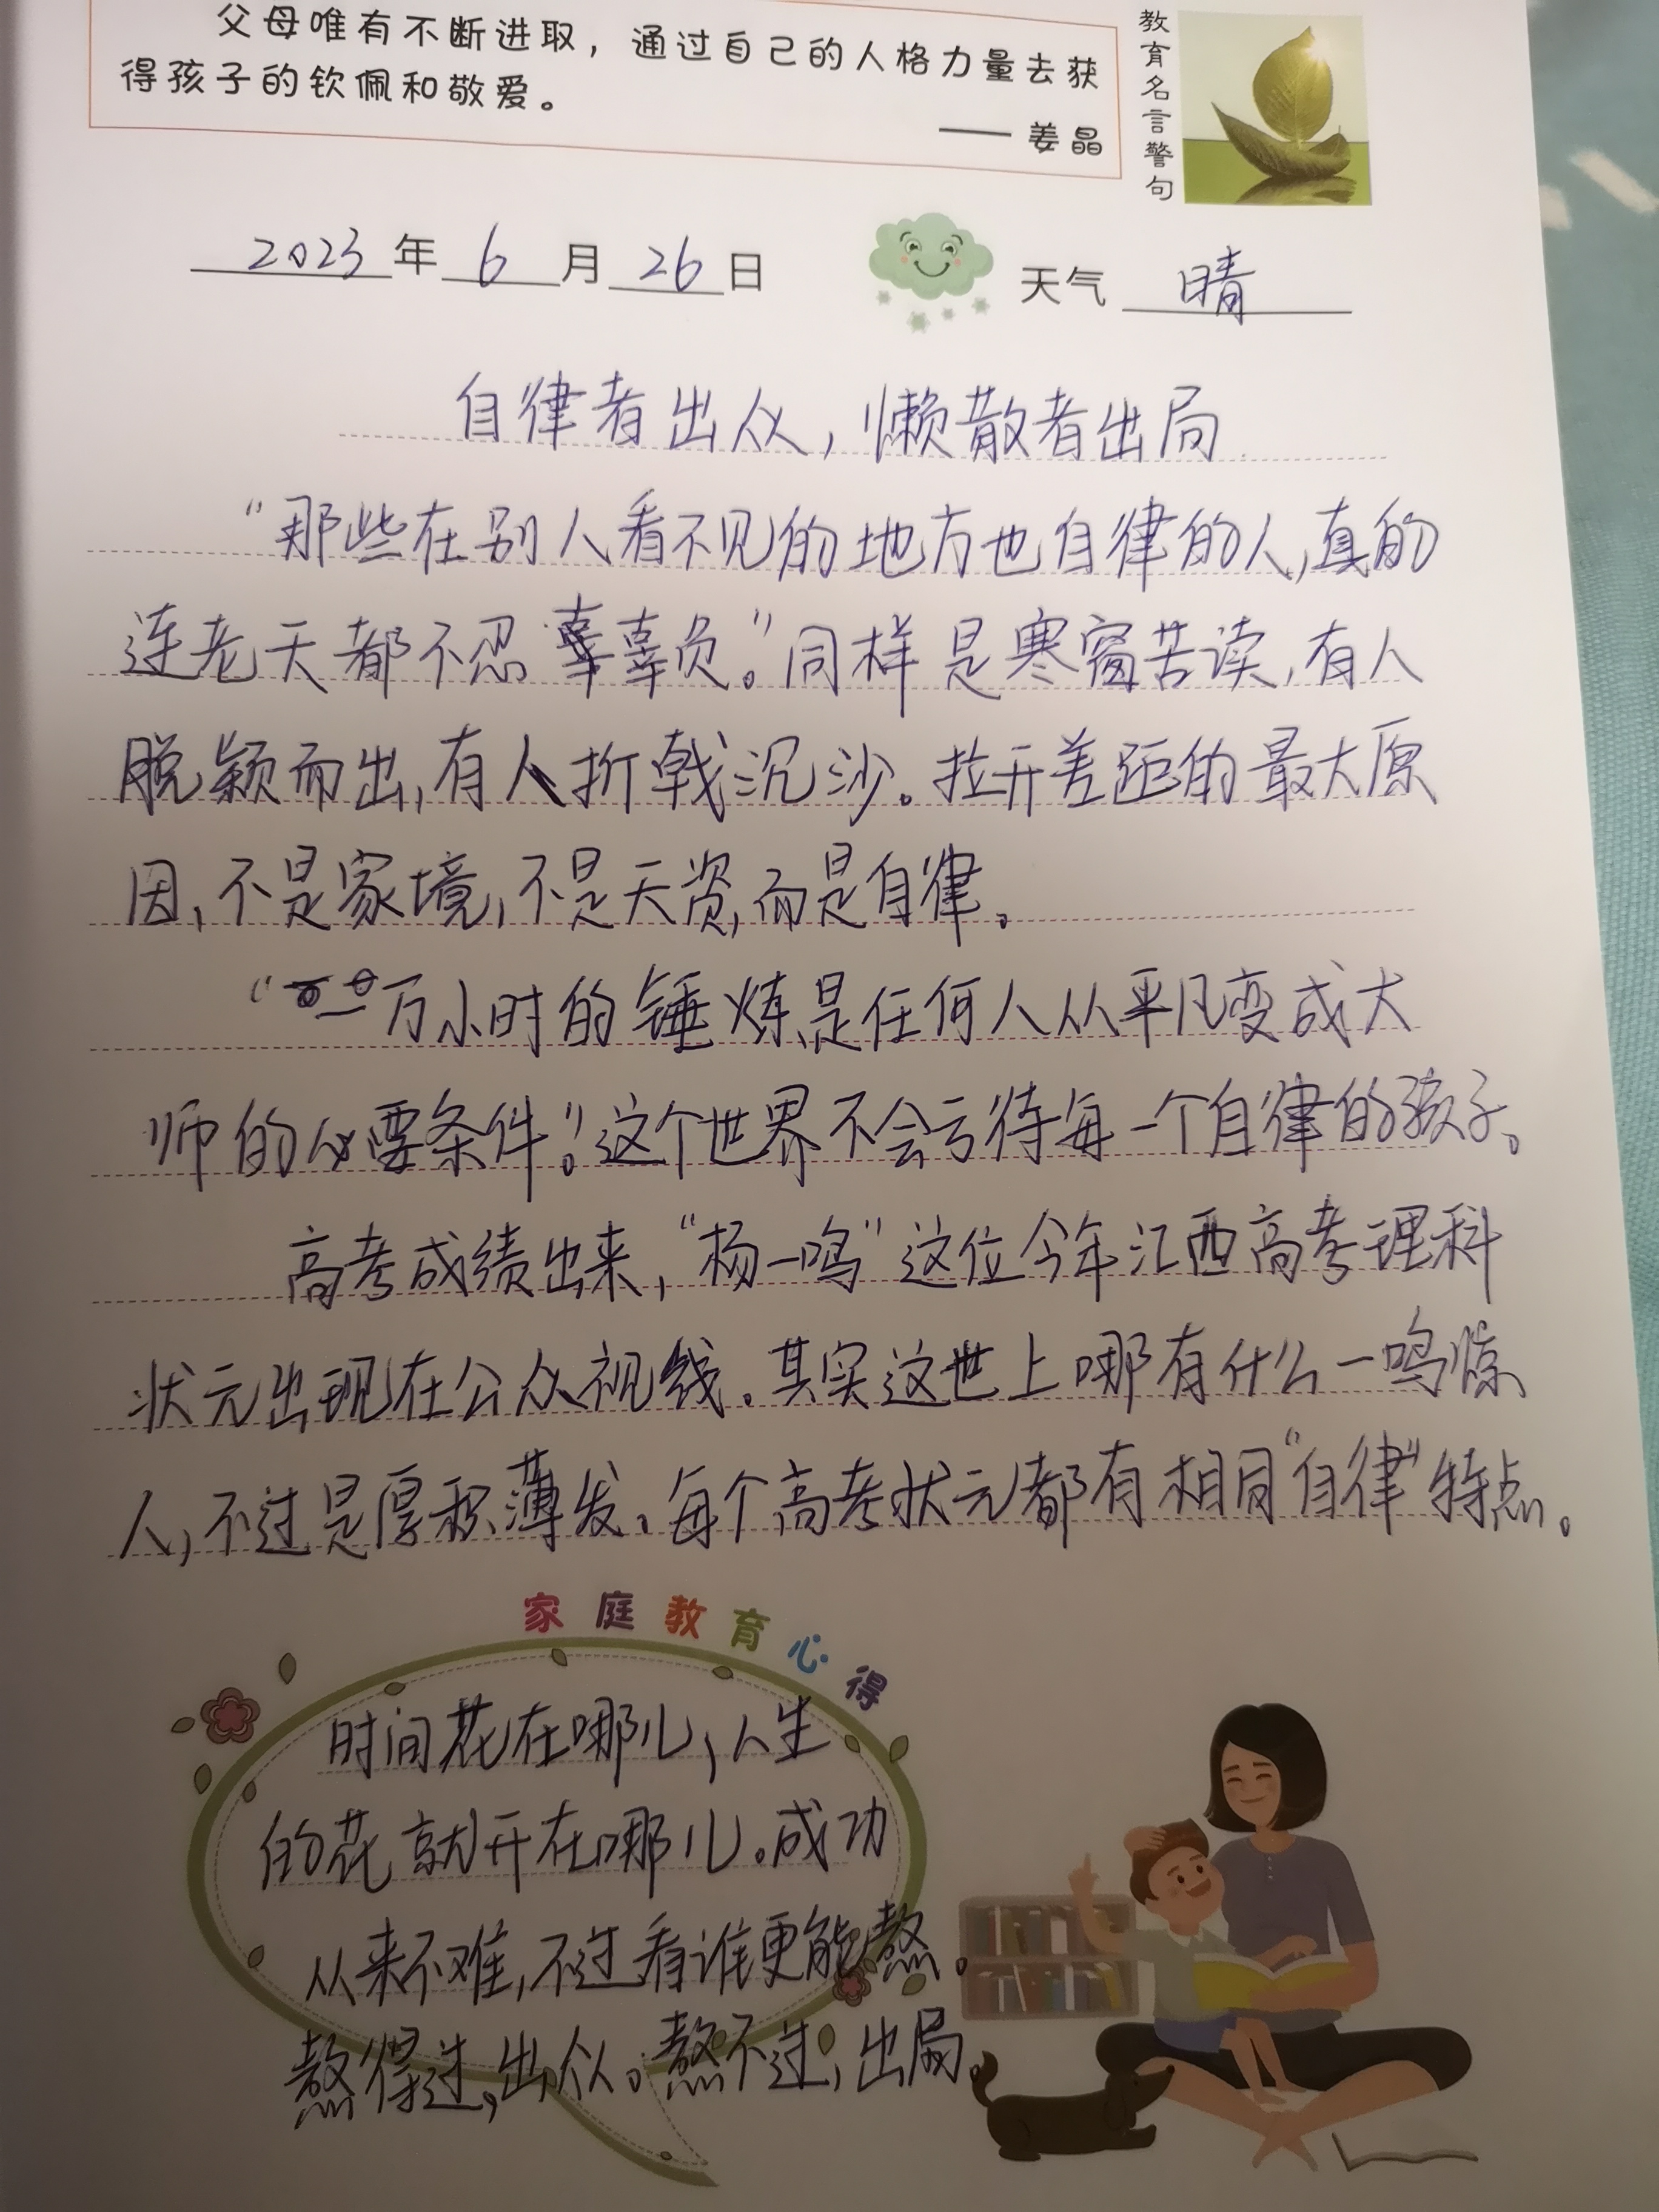 父母唯有不断进取，通过自己的人格力量去获
得孩子的钦佩和敬爱。
—— 姜晶
教育名言警句
2023年6月26日 天气 晴
自律者出众，懒散者出局
“那些在别人看不见的地方也自律的人，真的
连老天都不忍辜负。”同样是寒窗苦读，有人
脱颖而出，有人折戟沉沙。拉开差距的最大原
因，不是家境，不是天资，而是自律。
“万小时的锤炼是任何人从平凡变成大
师的必要条件。”这个世界不会亏待每一个自律的孩子。
高考成绩出来，“杨一鸣”这位今年江西高考理科
状元出现在公众视线。其实这世上哪有什么一鸣惊
人，不过是厚积薄发。每个高考状元都有相同“自律”特点。
家庭教育心得
时间花在哪儿，人生
的花就开在哪儿。成功
从来不难，不过看谁更能熬。
熬得过，出众。熬不过，出局。